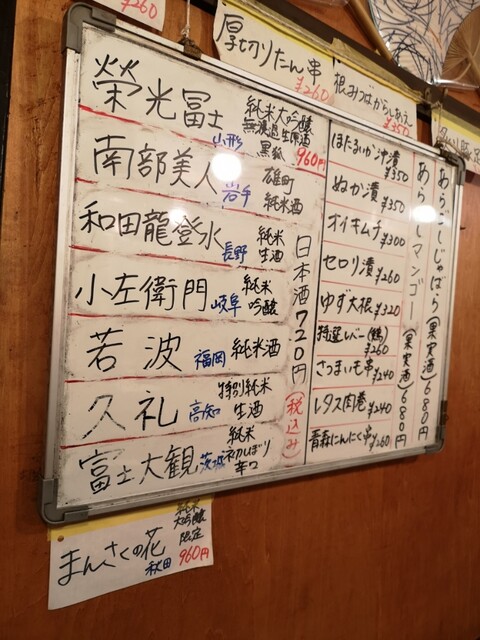 ¥260
厚切りたん串
¥260
根みつばからしあえ
¥350
榮光冨士
山形
純米大吟醸
無濾過生原酒
黒狐 960円
南部美人
岩手
雄町
純米酒
和田龍登水
長野
純米
生酒
小左衛門
岐阜
純米
吟醸
若波
福岡
純米酒
久礼
高知
特別純米
生酒
富士大観
茨城
純米
初しぼり
辛口
日本酒720円(税込み)
ほたるいか沖漬
¥350
ぬか漬
¥350
オイキムチ
¥300
セロリ漬
¥260
ゆず大根
¥320
特選レバー(鶏)
¥260
さつまいも串
¥240
レタス肉巻
¥240
青森にんにく串
¥260
あらごしじゃばら(果実酒)680円
あらごしマンゴー(果実酒)680円
まんさくの花
秋田
純米
大吟醸
限定
960円